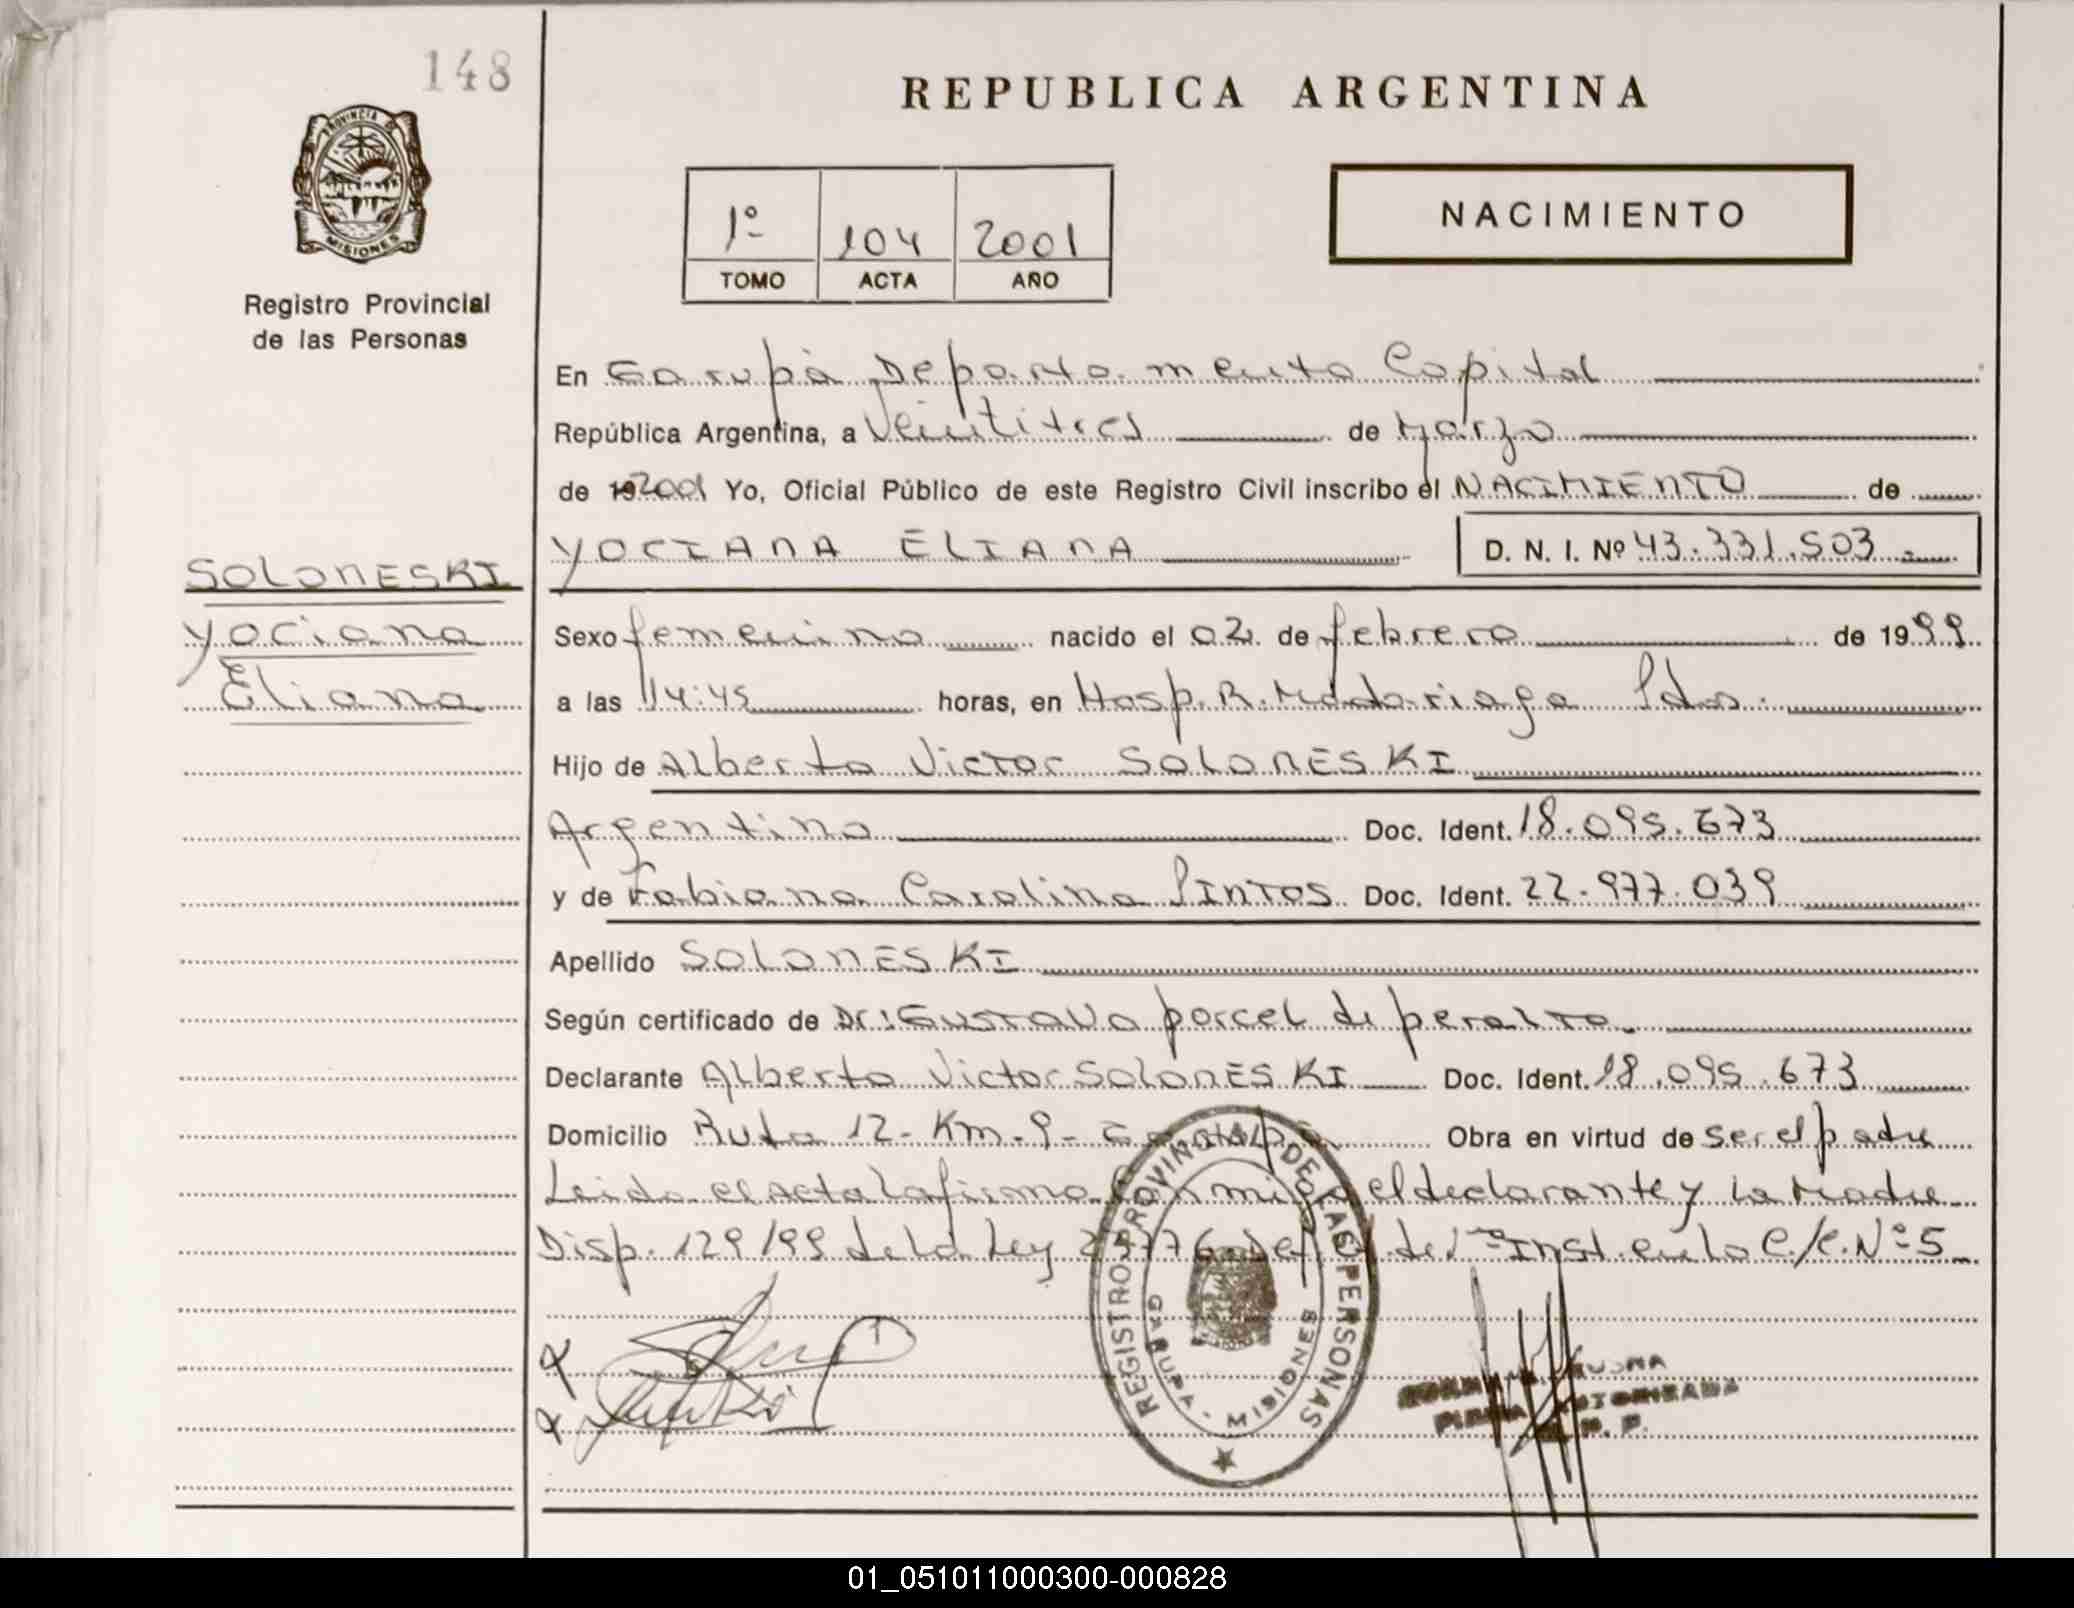 148
REPUBLICA ARGENTINA
PROVINCIA DE
MISIONES
Registro Provincial
de las Personas
1º 104 2001
TOMO ACTA AÑO
NACIMIENTO
En Garupá Departamento Capital
República Argentina, a Veintitres de Marzo
de 19 2001 Yo, Oficial Público de este Registro Civil inscribo el NACIMIENTO de
YOCIANA ELIANA D. N. I. Nº 43.331.503.-
SOLONESKI
Yociana
Eliana
Sexo femenino nacido el 02 de febrero de 1999
a las 14:45 horas, en Hosp. R. Madariaga Pdas.
Hijo de Alberto Victor SOLONESKI
Argentino Doc. Ident. 18.095.673
y de Fabiana Carolina PINTOS Doc. Ident. 22.977.039
Apellido SOLONESKI
Según certificado de Dr: Gustavo porcel de peralta
Declarante Alberto Victor SOLONESKI Doc. Ident. 18.095.673
Domicilio Ruta 12- Km-9- Garupá Obra en virtud de ser el padre
Leida el acta la firma el declarante y la Madre
Disp. 129/99 de la Ley de 1º Inst. en lo C./C. Nº 5
REGISTRO PROVINCIAL DE LAS PERSONAS
GARUPA - MISIONES
AUTORIZADA
01_051011000300-000828